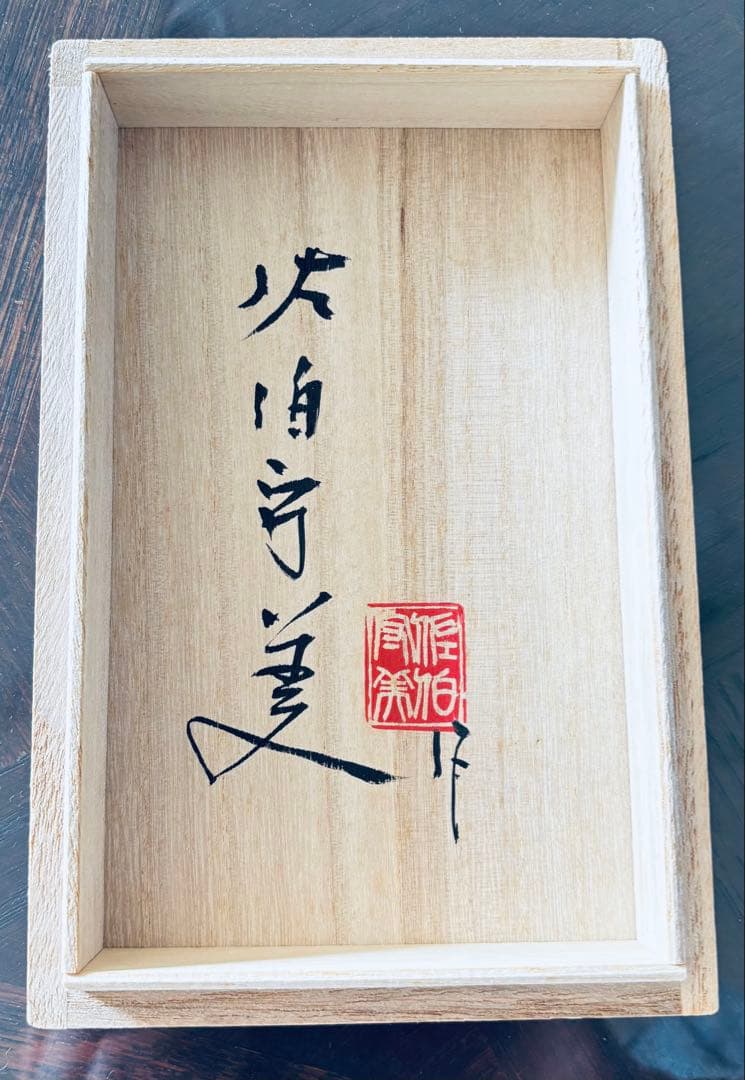 佐伯守美
佐伯
守美
作